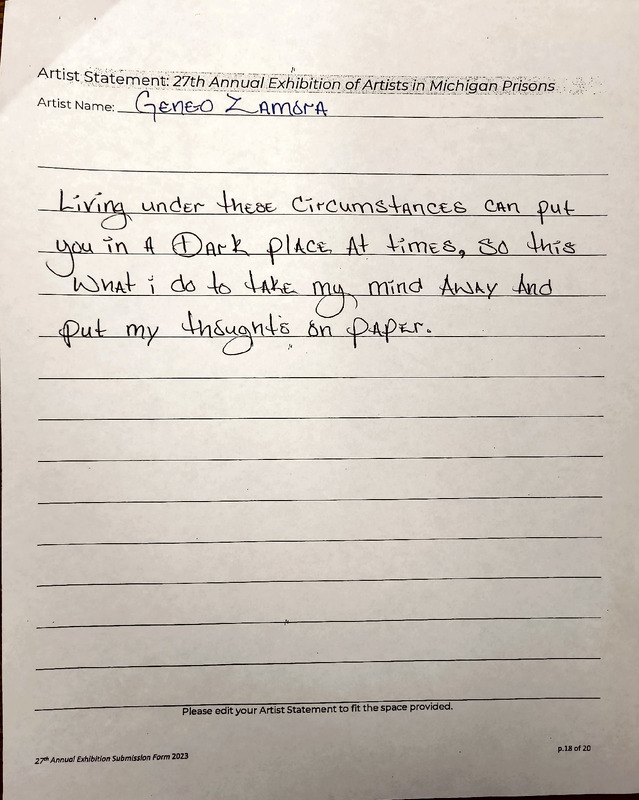 Artist Statement: 27th Annual Exhibition of Artists in Michigan Prisons
Artist Name: Geneo Zamora
Living under these Circumstances can put
you in A Dark place At times, So this
What i do to take my mind Away And
put my thoughts on paper.
Please edit your Artist Statement to fit the space provided.
27th Annual Exhibition Submission Form 2023
p.18 of 20